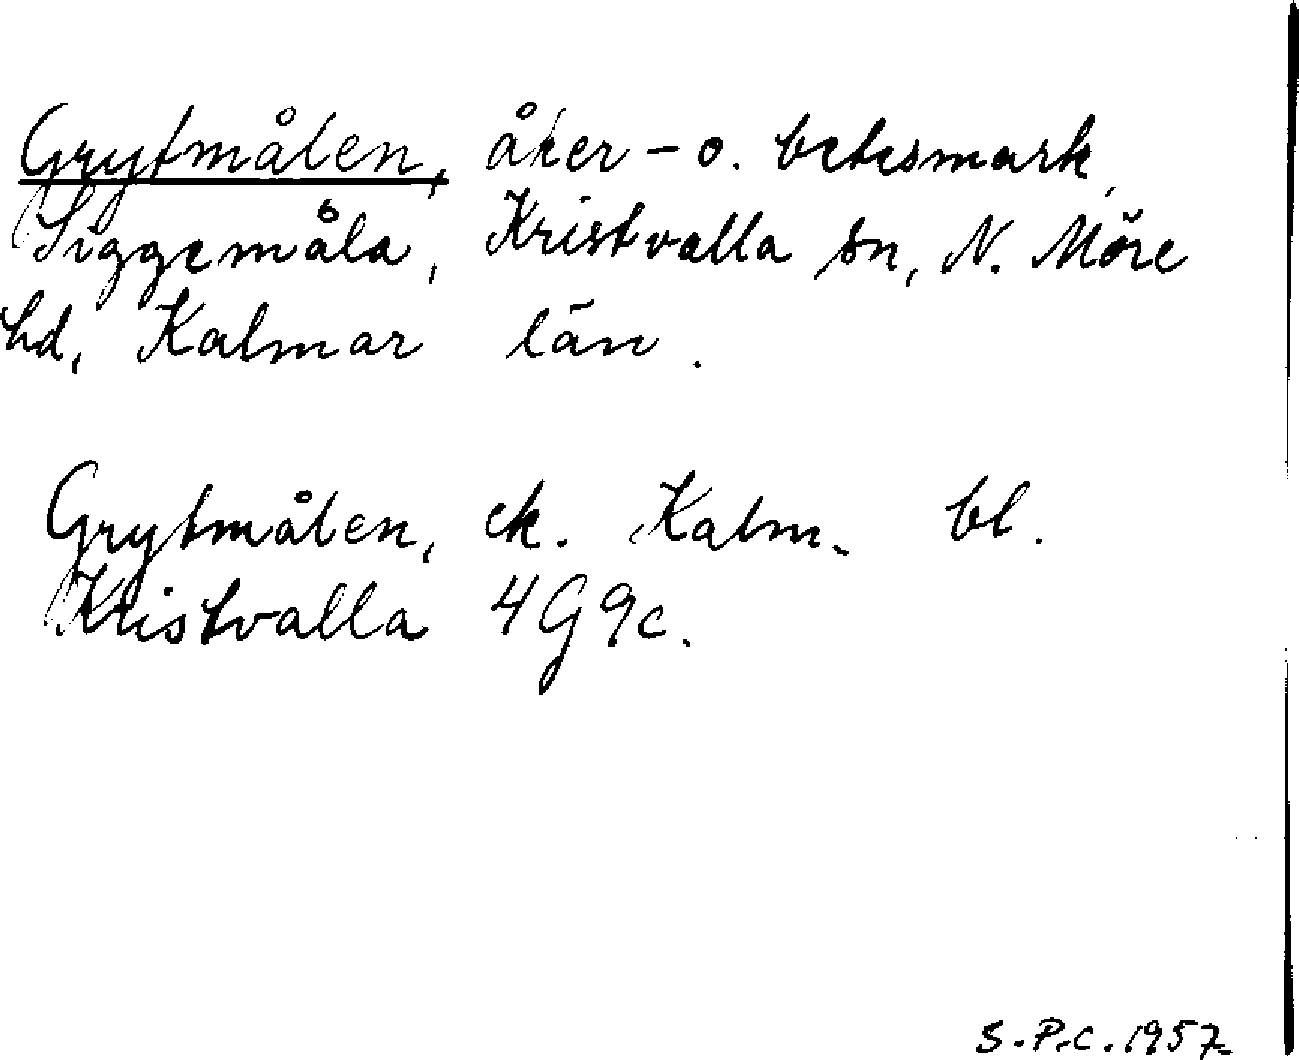 Grytmålen, åker- o. betesmark,
Siggemåla, Kristvalla sn, N. Möre
hd, Kalmar län.
Grytmålen, ek. Kalm. bl.
Kristvalla 4G9c.
S.P.C. 1957